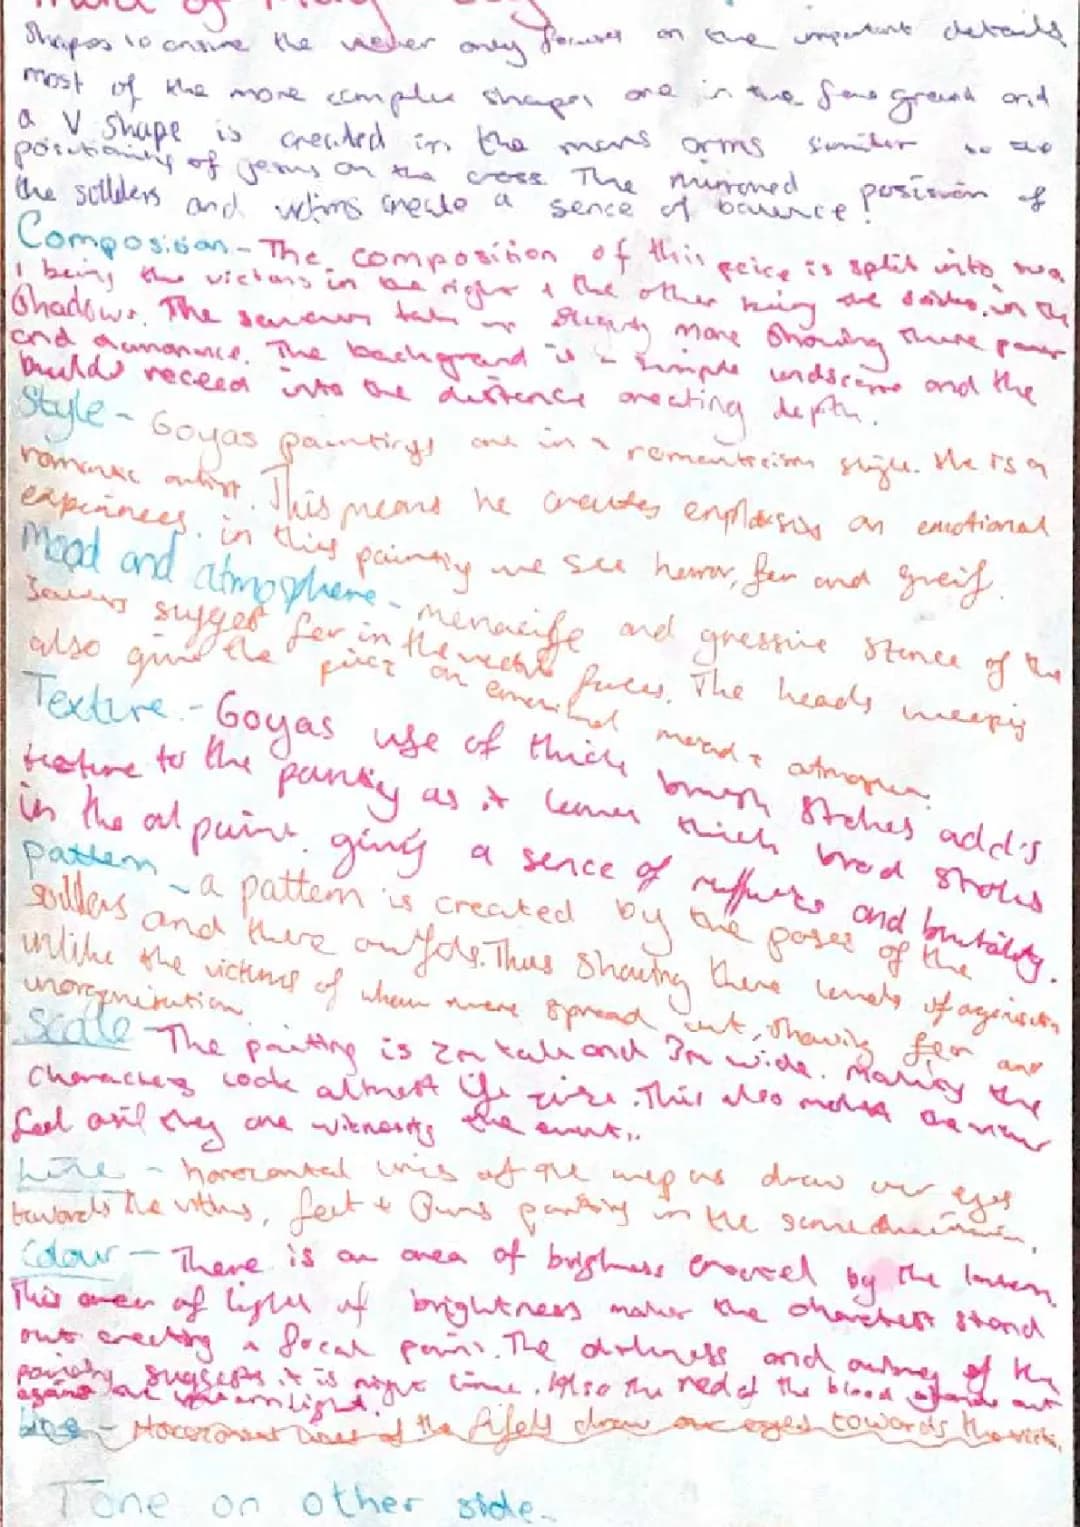 Shapes to ensure the viewer only focuses on the important details
most of the more complex shapes are in the fore ground and
a V shape is created in the mans arms similar to the
positioning of jesus on the cross The mirrored position of
the solders and victims create a sence of balance!
Composition - The composition of this peice is split into two
1 being the victims in the right & the other being the in the
Shadows. The take up slightly more showing there power
and dominance. The background is a simple landscape and the
builds receed into the distence creating depth.
Style - Goyas paintings are in a romanticism style. He is a
romantic artist. This means he creates emphasis on emotional
experinces. in this painting we see horror, fear and greif.
Mood and atmosphere - menacing and gressive stance of the
suggest fer in the victims faces. The heads weeping
also give the piece an emotional mood & atmosphere.
Texture - Goyas use of thick brush stokes adds
texture to the painting as it leaves thick brod strokes
in the oil paint. giving a sence of and brutality.
pattern - a pattern is created by the poses of the
solders and there outfits. Thus showing there levels of
unlike the victims of whom were spread out, showing fear and
unorganisation.
Scale - The painting is 2m tall and 3m wide. Making the
Characters look almost life size. This also makes the viewer
feel asif they are witnessing the event.
Line - horozontal lines of the wepons draw our eyes
towards the victims, feet & Guns pointing in the same direction.
Colour - There is an area of brightness created by the lantern.
This area of light of brightness makes the characters stand
out creating a focal point. The darkness and of the
painting suggests it is night time. Also the red of the blood stands out
against the light.
Line - Horozontal lines of the rifels draw our eyes towards the victims.
Tone on other side.